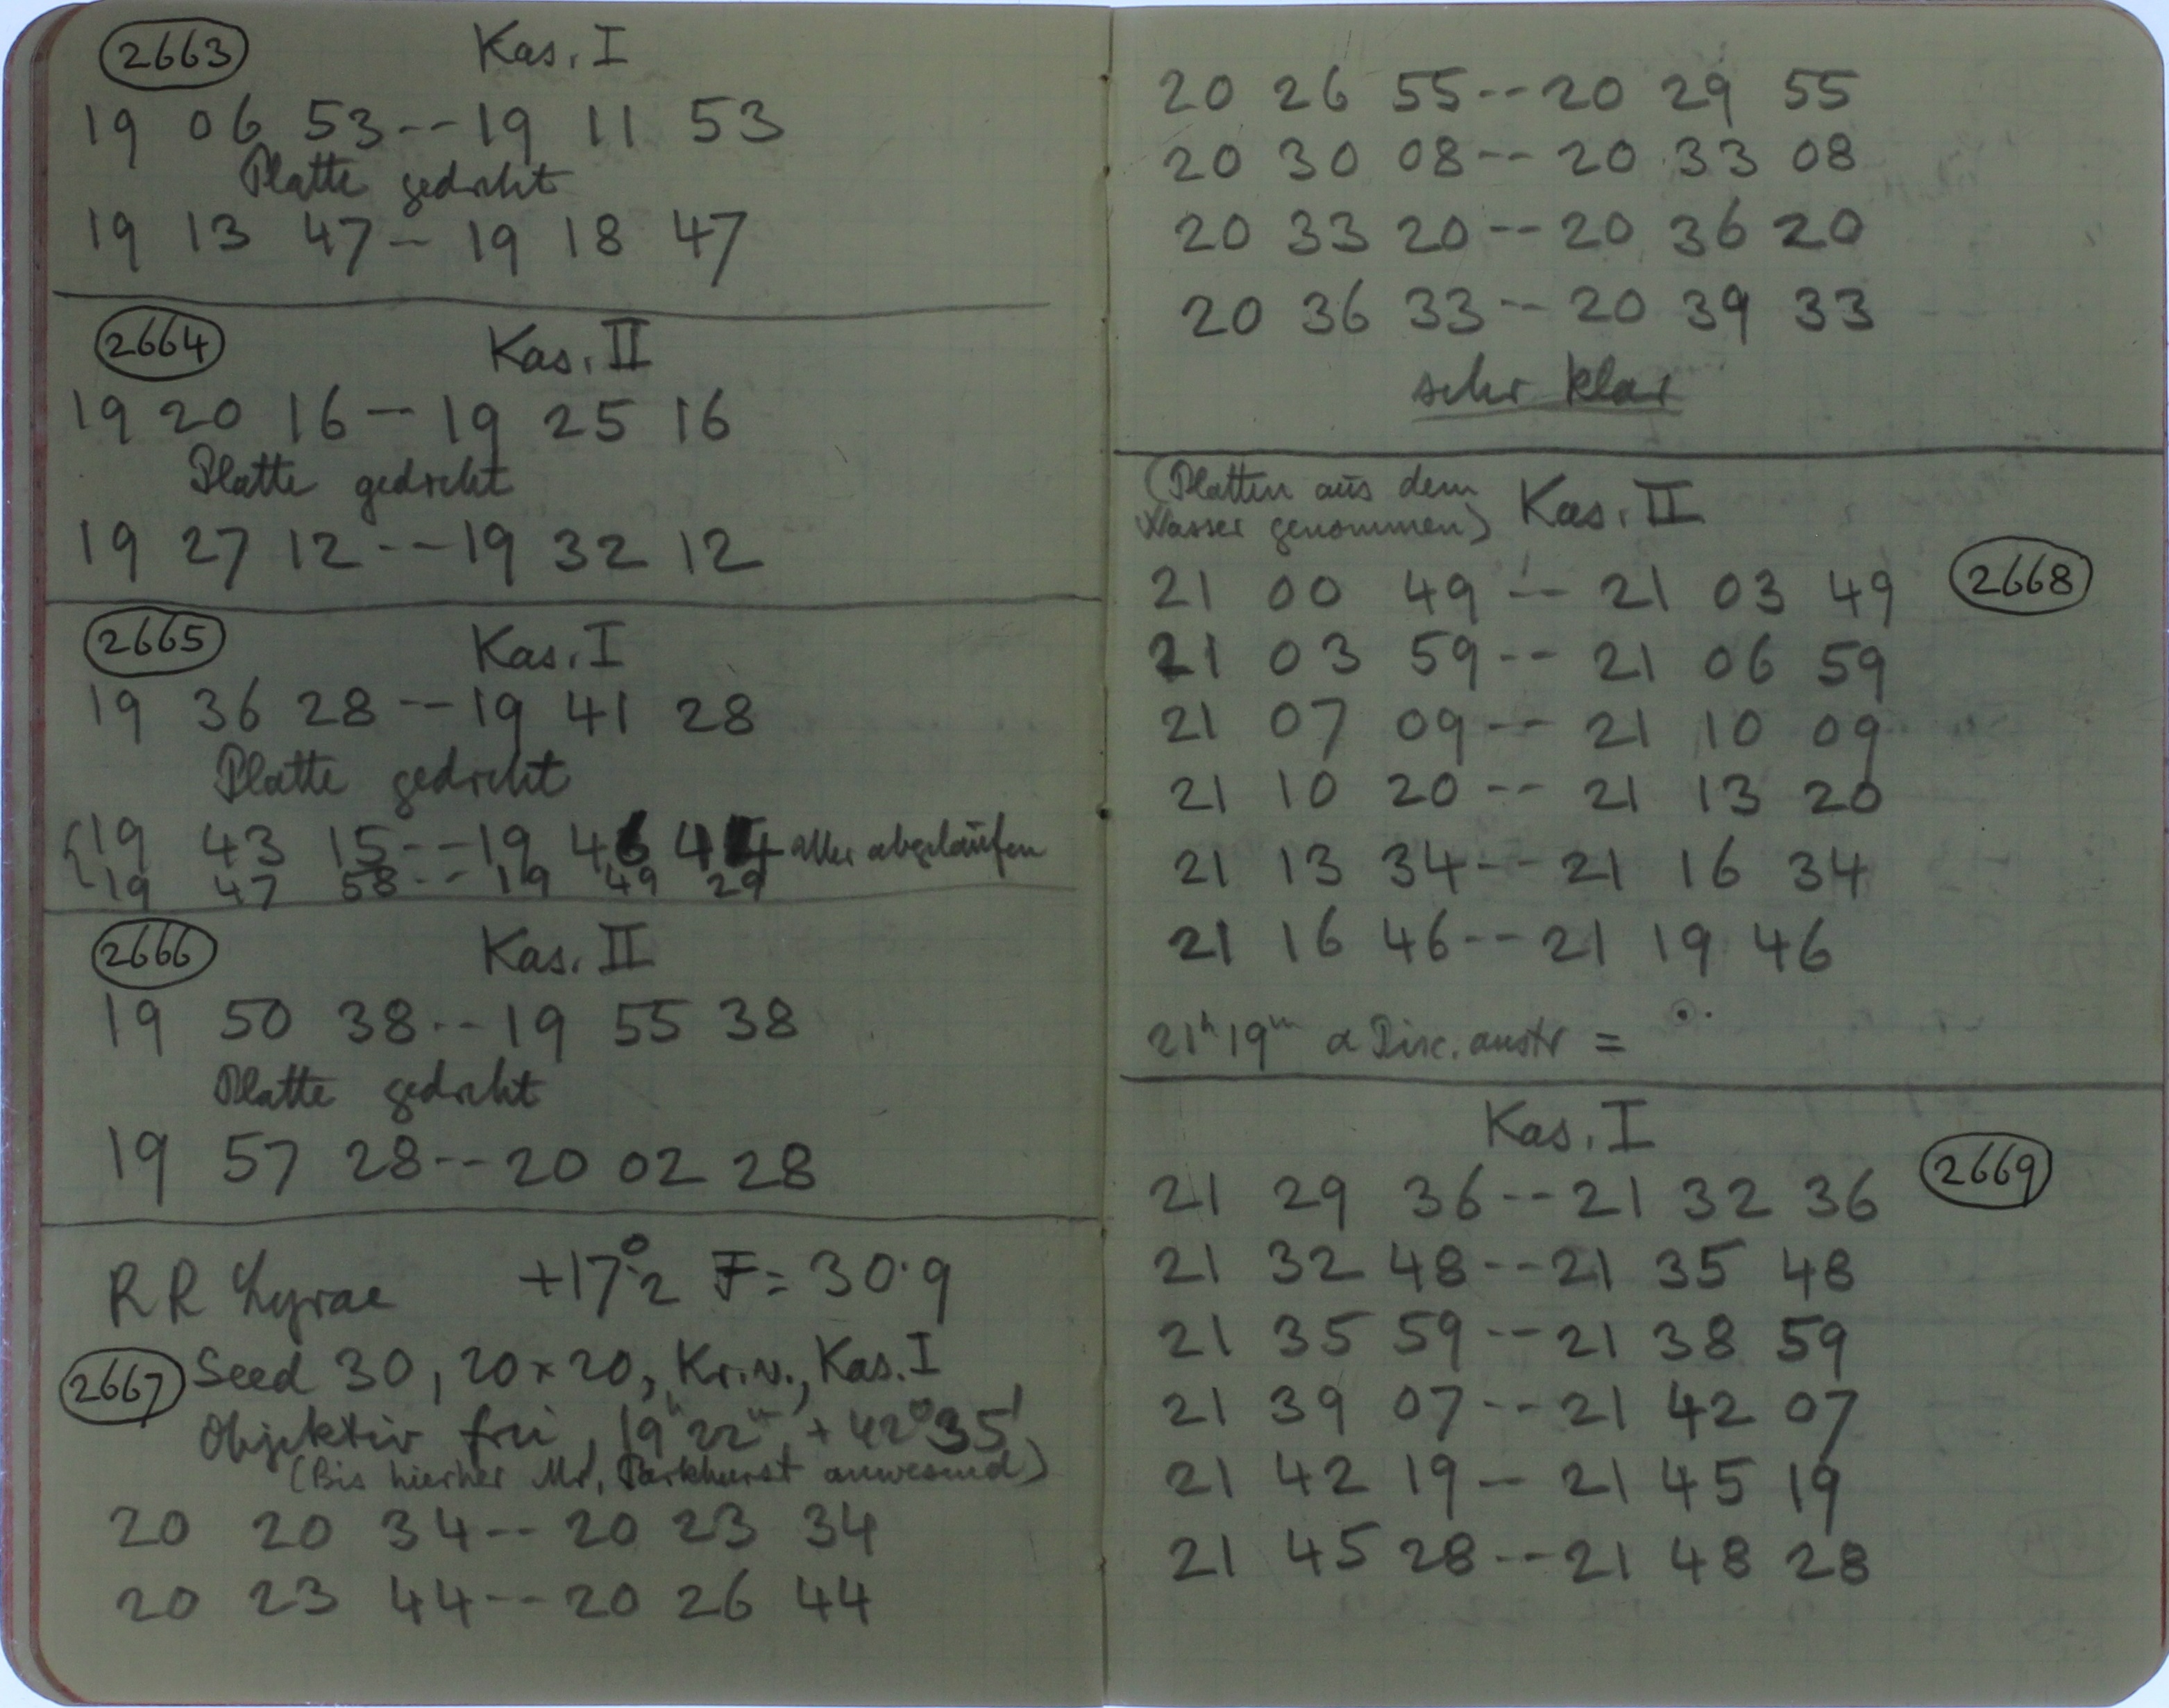 2663 Kas. I
19 06 53 -- 19 11 53
Platte gedreht
19 13 47 -- 19 18 47
2664 Kas. II
19 20 16 -- 19 25 16
Platte gedreht
19 27 12 -- 19 32 12
2665 Kas. I
19 36 28 -- 19 41 28
Platte gedreht
19 43 15 -- 19 46 44 abgelaufen
19 47 58 -- 19 49 29
2666 Kas. II
19 50 38 -- 19 55 38
Platte gedreht
19 57 28 -- 20 02 28
RR Lyrae +17°.2 F = 30.9
2667 Seed 30, 20 x 20, Kr. N., Kas. I
Objektiv frei, 19h 22m, + 42° 35'
(Bis hierher Mr. Parkhurst anwesend)
20 20 34 -- 20 23 34
20 23 44 -- 20 26 44
20 26 55 -- 20 29 55
20 30 08 -- 20 33 08
20 33 20 -- 20 36 20
20 36 33 -- 20 39 33
sehr klar
(Platten aus dem Kas. II
Wasser genommen)
21 00 49 -- 21 03 49 2668
21 03 59 -- 21 06 59
21 07 09 -- 21 10 09
21 10 20 -- 21 13 20
21 13 34 -- 21 16 34
21 16 46 -- 21 19 46
21h 19m α Pisc. austr =
Kas. I
21 29 36 -- 21 32 36 2669
21 32 48 -- 21 35 48
21 35 59 -- 21 38 59
21 39 07 -- 21 42 07
21 42 19 -- 21 45 19
21 45 28 -- 21 48 28